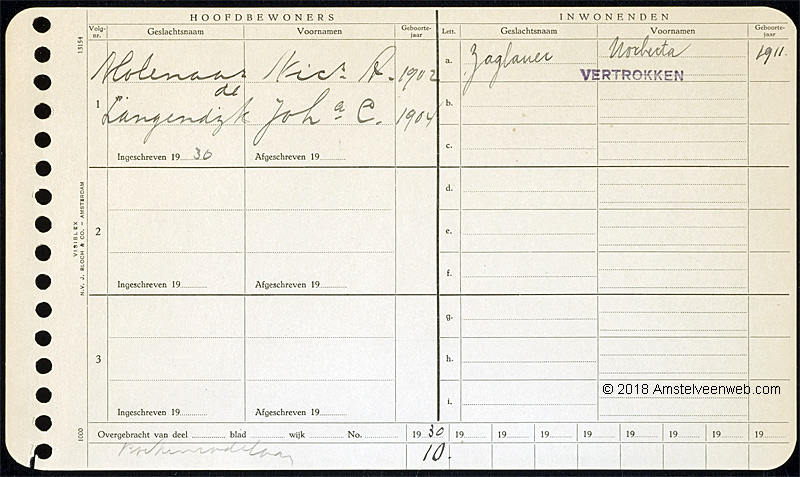 HOOFDBEWONERS
INWONENDEN
Volg-nr. Geslachtsnaam Voornamen Geboorte-jaar Lett. Geslachtsnaam Voornamen Geboorte-jaar
1 Molenaar Nics A. 1902
de
Langendijk Joha C. 1904
Ingeschreven 19 30 Afgeschreven 19
a. Zaglauer Norberta 1911.
VERTROKKEN
b.
c.
2
Ingeschreven 19 Afgeschreven 19
d.
e.
f.
3
Ingeschreven 19 Afgeschreven 19
g.
h.
i.
© 2018 Amstelveenweb.com
Overgebracht van deel blad wijk No. 19 30 19 19 19 19 19 19 19 19
10.
13154
VISIBLEX
N.V. J. BLOCH & CO. - AMSTERDAM
1000